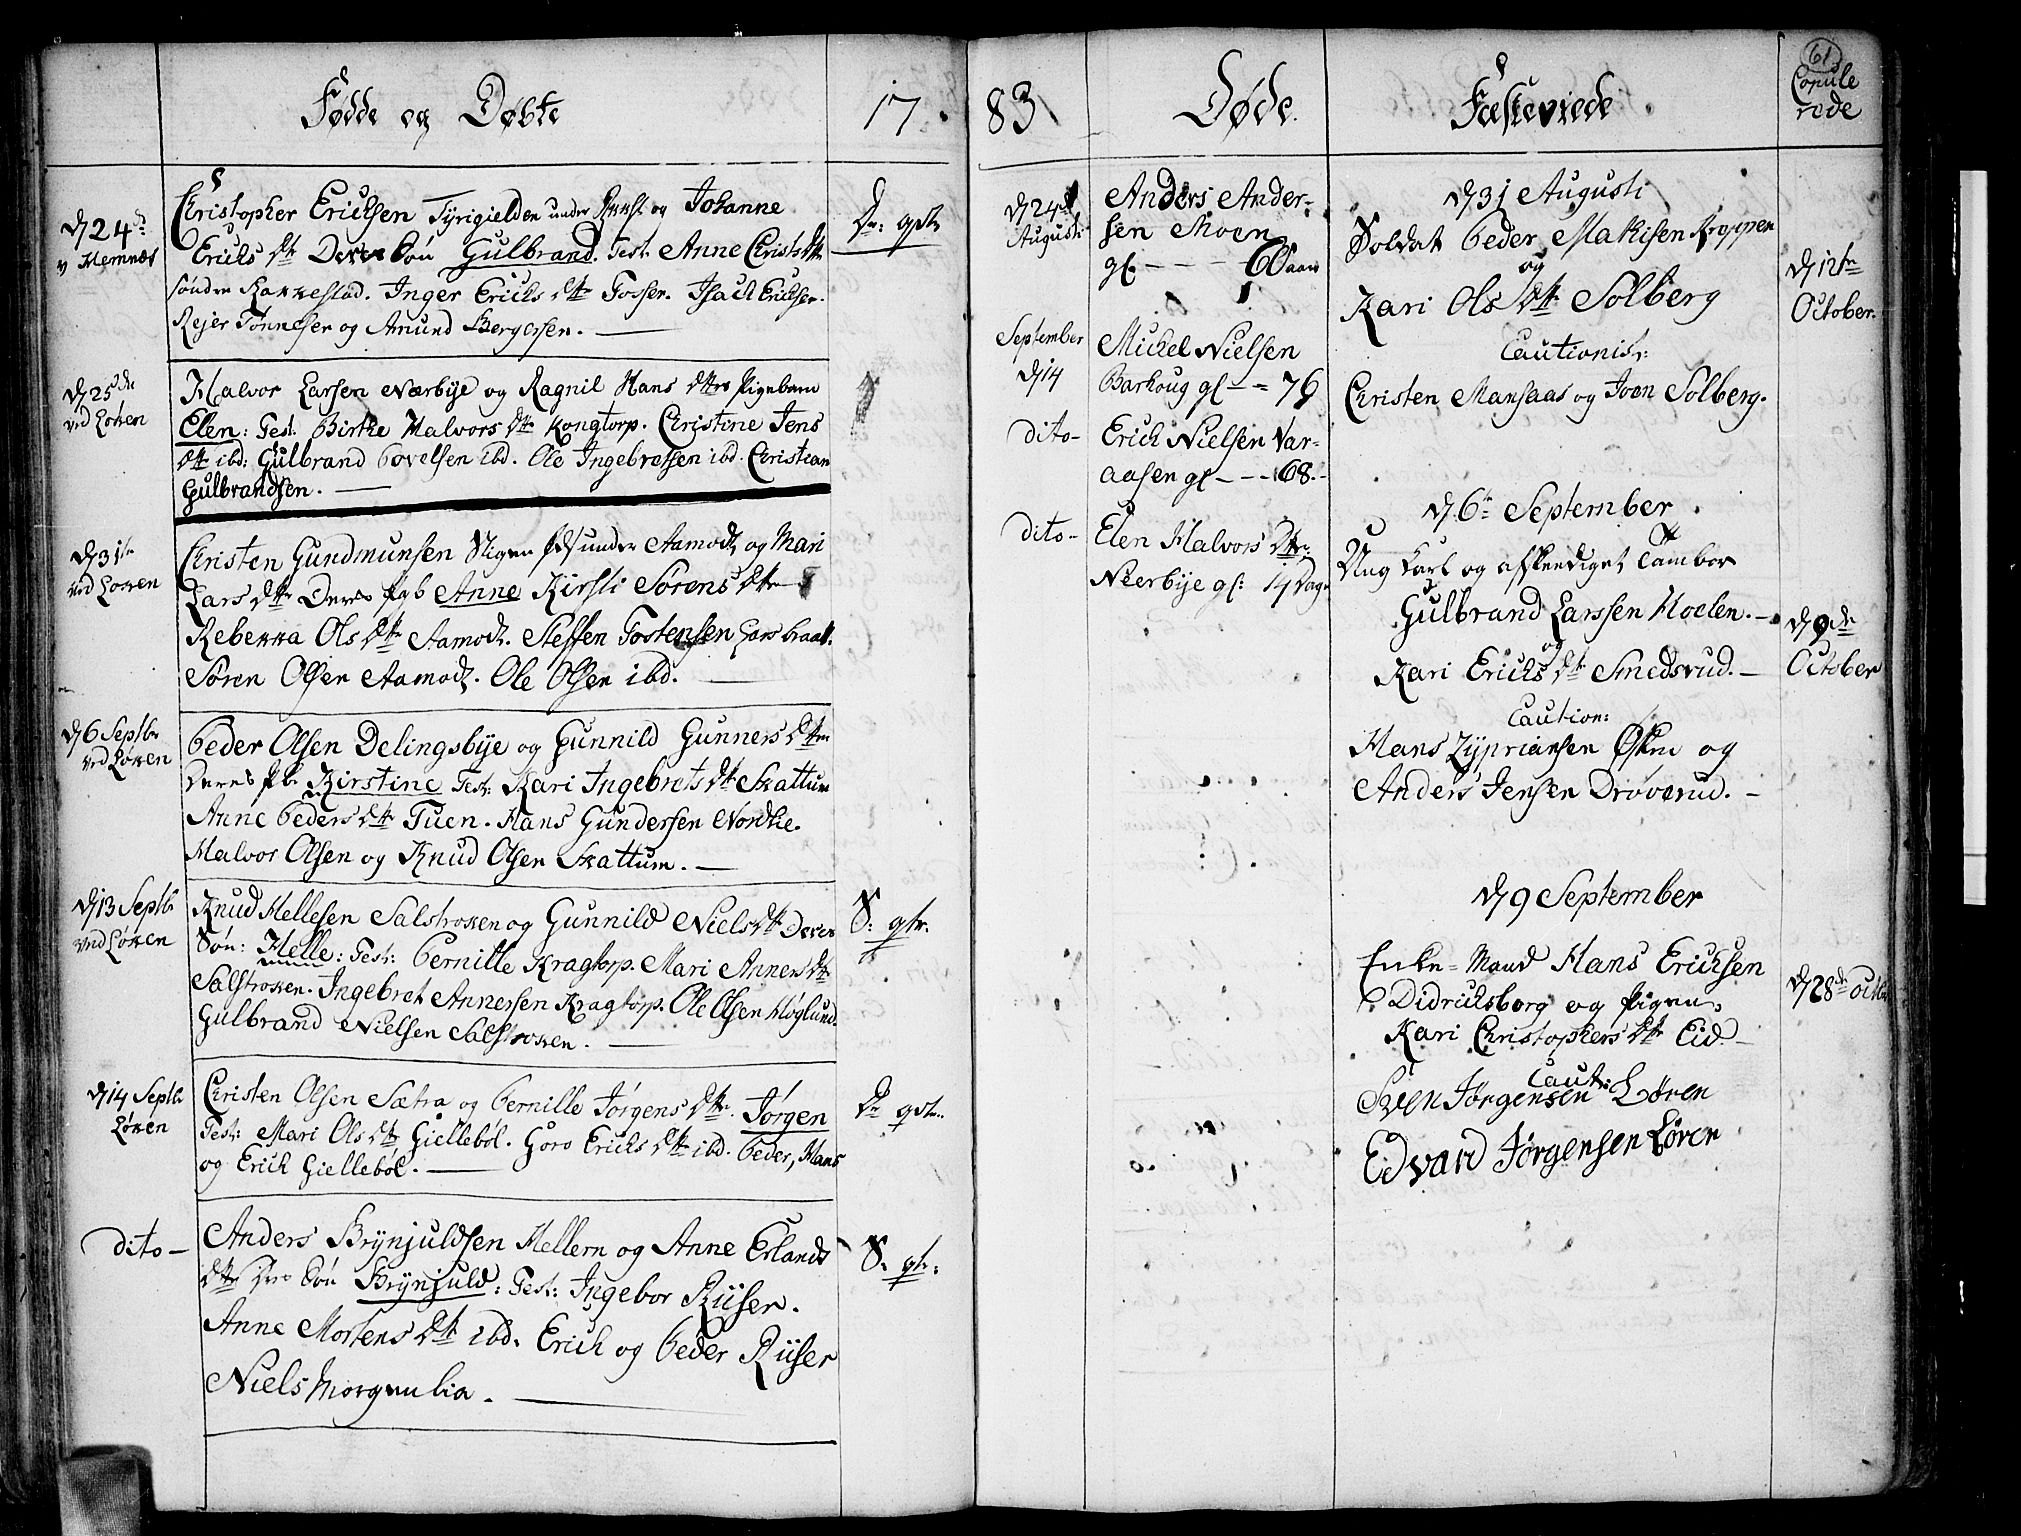 Fødde og Døbte
17
d 24de
v Hemnæs
Christopher Ericksen Tyrigielden under og Johanne
Ericks dtr Deres Søn Gulbrand. Test. Anne Christs dtr
søndre Rakkestad. Inger Ericks dtr Fosser. Isach Ericksen.
Rejer Tønnesen og Amund Bergersen.
d 25de
ved Løken
Halvor Larsen Nærbye og Ragnil Hans dtrs Pigebarn
Elen: Test. Birthe Halvors dtr Kongtorp. Christine Jens
dtr ibd: Gulbrand Povelsen ibd. Ole Ingebretsen ibd. Christian
Gulbrandsen.
d 31te
ved Løken
Christen Gundmunsen under Aamodt og Mari
Lars dtr Deres Pgb Anne Kirsti Sørens dtr
Rebekka Ols dtr Aamodt. Steffen Tostensen Lars braat.
Søren Olsen Aamodt. Ole Olsen ibd.
d 6 Septbr
ved Løken
Peder Olsen Delingsbye og Gunnild Gunners dtr
Deres Pb. Kirstine Test: Kari Ingebrets dtr Skattum
Anne Peders dtr Tuen. Hans Gundersen Nordbye.
Halvor Olsen og Knud Olsen Skattum.
d 13 Septbr
ved Løken
Knud Hellesen Salstrokken og Gunnild Niels dtr Deres
Søn: Helle: Test: Pernille Kragtorp. Mari Anners dtr
Salstrokken. Ingebret Annersen Kragtorp. Ole Olsen Høglund.
Gulbrand Nielsen Salstrokken.
S: gtr.
d 14 Septbr
Løken
Christen Olsen Sætra og Pernille Jørgens dtr. Jørgen
Test: Mari Ols dtr Gielleböl. Goro Ericks dtr ibd. Peder, Hans
og Erich Gielleböl.
dito
Anders Brynjuldsen Hellern og Anne Erlands
dtr Søn Brynjuld: Test: Ingebor Riiser.
Anne Mortens dtr ibd. Erich og Peder Riiser
Niels Morgenlia.
S. gtr:
83
Døde.
d 24de
Augusti
Anders Ander-
sen Moen
gl. - - - 60 aar
September
d 14
Michel Nielsen
Barhoug gl - - 76
dito
Erich Nielsen Var-
aasen gl - - - 68.
dito
Elen Halvors dtr
Nerbye gl: 14 Dage
Fæsteviede
d 31 Augusti
Soldat Peder Mathisen Kroppen
og
Kari Ols dtr Solberg
Cautionist:
Christen Mansaas og Joen Solberg.
d 6te September
Ung karl og afskeediget Tambor
Gulbrand Larssen Moelen.
og
Kari Ericks dtr Smedsrud.
Caution:
Hans Zypriansen Østen og
Anders Jensen Drøverud.
d 9 September
Enke-Mand Hans Ericksen
Didricksborg og Pigen
Kari Christophers dtr Eid
Caut:
Sven Jørgensen Løren
Edvard Jørgensen Løren
61
Copule
rede
d 12te
October.
d 9de
October
d 28de Octbr